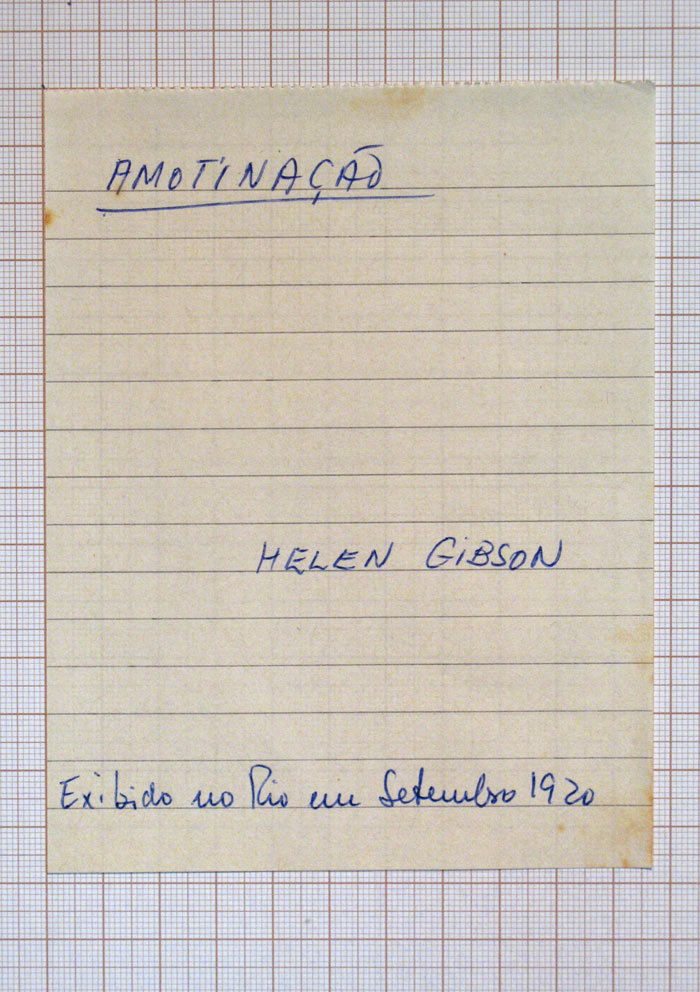 AMOTINAÇÃO
HELEN GIBSON
Exibido no Rio em Setembro 1920